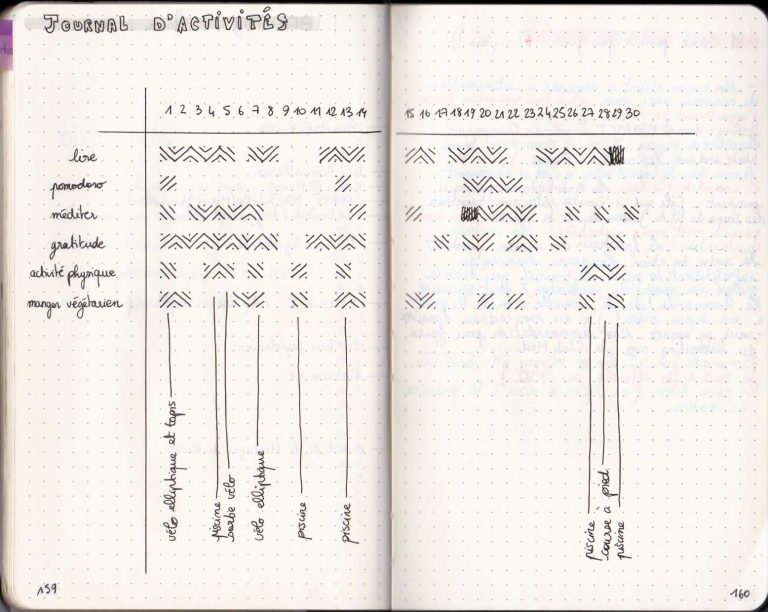 JOURNAL D'ACTIVITÉS
1 2 3 4 5 6 7 8 9 10 11 12 13 14
15 16 17 18 19 20 21 22 23 24 25 26 27 28 29 30
lire
pomodoro
méditer
gratitude
activité physique
manger végétarien
vélo elliptique et tapis
piscine
vélo
vélo elliptique
piscine
piscine
piscine
course à pied
piscine
159
160